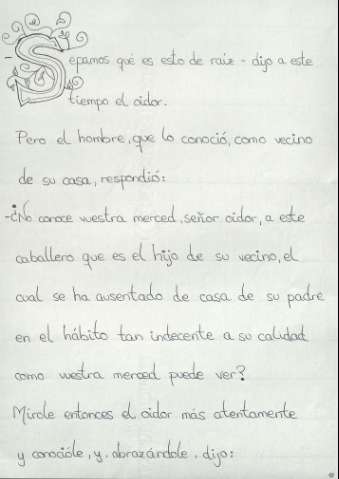 -Sepamos qué es esto de raíz - dijo a este
tiempo el oidor.
Pero el hombre, que lo conoció, como vecino
de su casa, respondió:
-¿No conoce vuestra merced, señor oidor, a este
caballero que es el hijo de su vecino, el
cual se ha ausentado de casa de su padre
en el hábito tan indecente a su calidad
como vuestra merced puede ver?
Mirole entonces el oidor más atentamente
y conocióle, y, abrazándole, dijo: